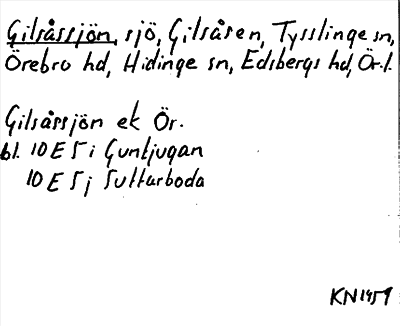 Gilsåssjön, sjö, Gilsåsen, Tysslinge sn,
Örebro hd, Hidinge sn, Edsbergs hd, Ör. l.
Gilsåssjön ek Ör.
bl. 10E 5i Guntjugan
10E 5j Suttarboda
KN 1959